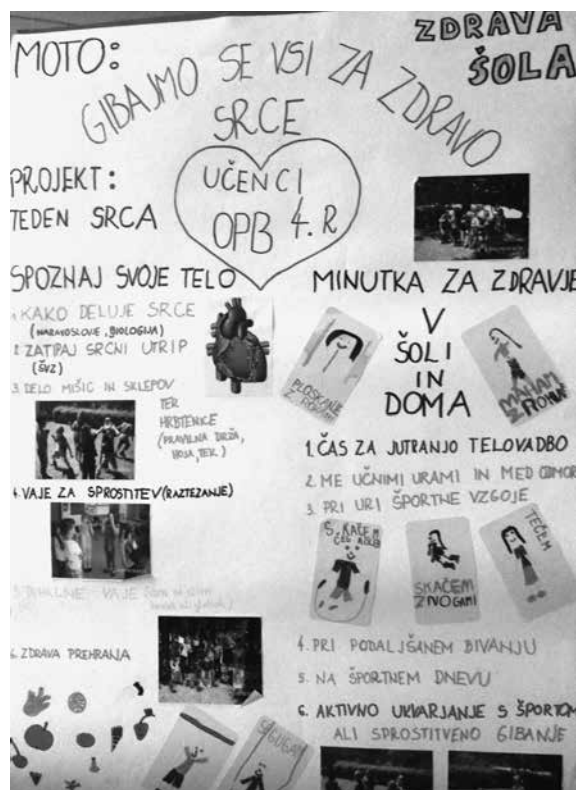 ZDRAVA
ŠOLA
MOTO:
GIBAJMO SE VSI ZA ZDRAVO
SRCE
PROJEKT:
TEDEN SRCA
UČENCI
OPB 4.R
SPOZNAJ SVOJE TELO
1. KAKO DELUJE SRCE
(NARAVOSLOVJE, BIOLOGIJA)
2. ZATIPAJ SRČNI UTRIP
(ŠVZ)
3. DELO MIŠIC IN SKLEPOV
TER
HRBTENICE
(PRAVILNA DRŽA,
HOJA, TEK)
4. VAJE ZA SPROSTITEV (RAZTEZANJE)
5. DIHALNE VAJE
6. ZDRAVA PREHRANA
MINUTKA ZA ZDRAVJE
V
ŠOLI
IN
DOMA
PLOSKANJE
Z ROKAMI
MAHAM
Z ROKAMI
1. ČAS ZA JUTRANJO TELOVADBO
2. ME UČNIMI URAMI IN MED ODMOR
3. PRI URI ŠPORTNE VZGOJE
S KAČEM
ČEZ
SKAČEM
Z NOGAMI
TEČEM
4. PRI PODALJŠANEM BIVANJU
5. NA ŠPORTNEM DNEVU
6. AKTIVNO UKVARJANJE S ŠPORTOM
ALI SPROSTITVENO GIBANJE